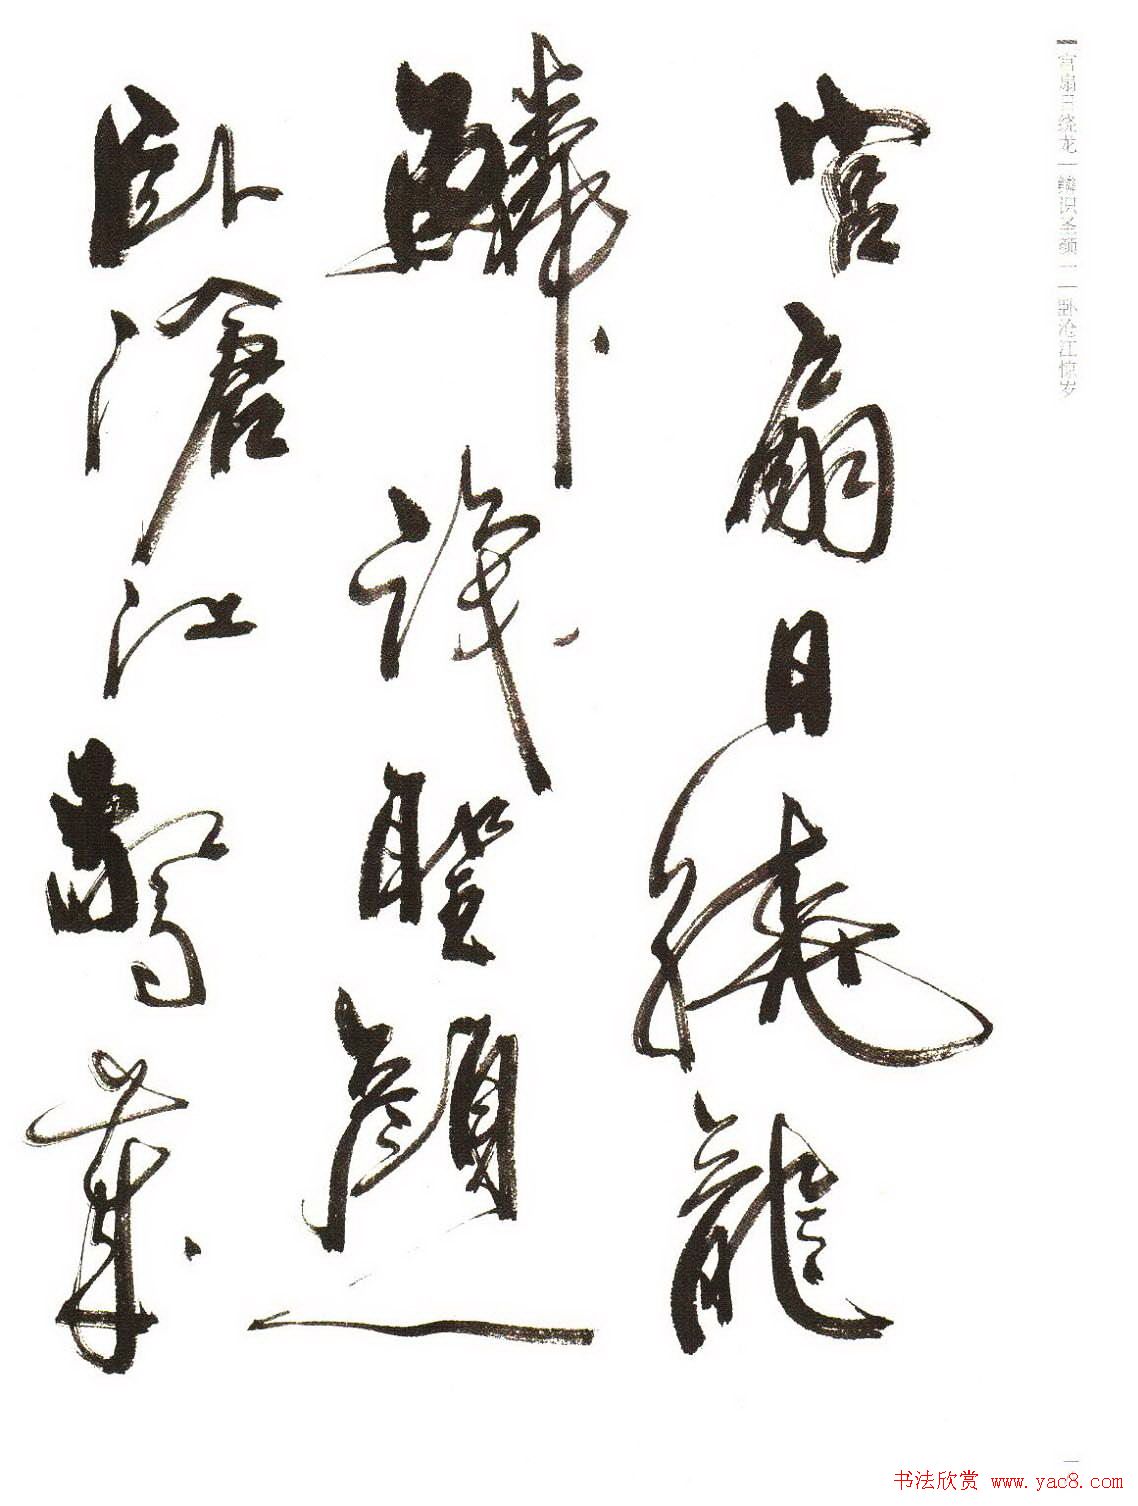 宫扇日绕龙｜鳞识圣颜 一｜卧沧江惊岁
宮扇日繞龍
鱗識聖顏一
臥滄江驚歲
一
书法欣赏 www.yac8.com